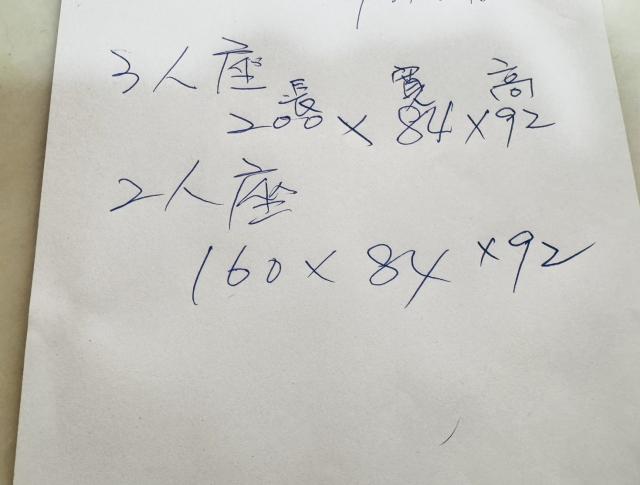 3人座
長 寬 高
200×84×92
2人座
160×84×92